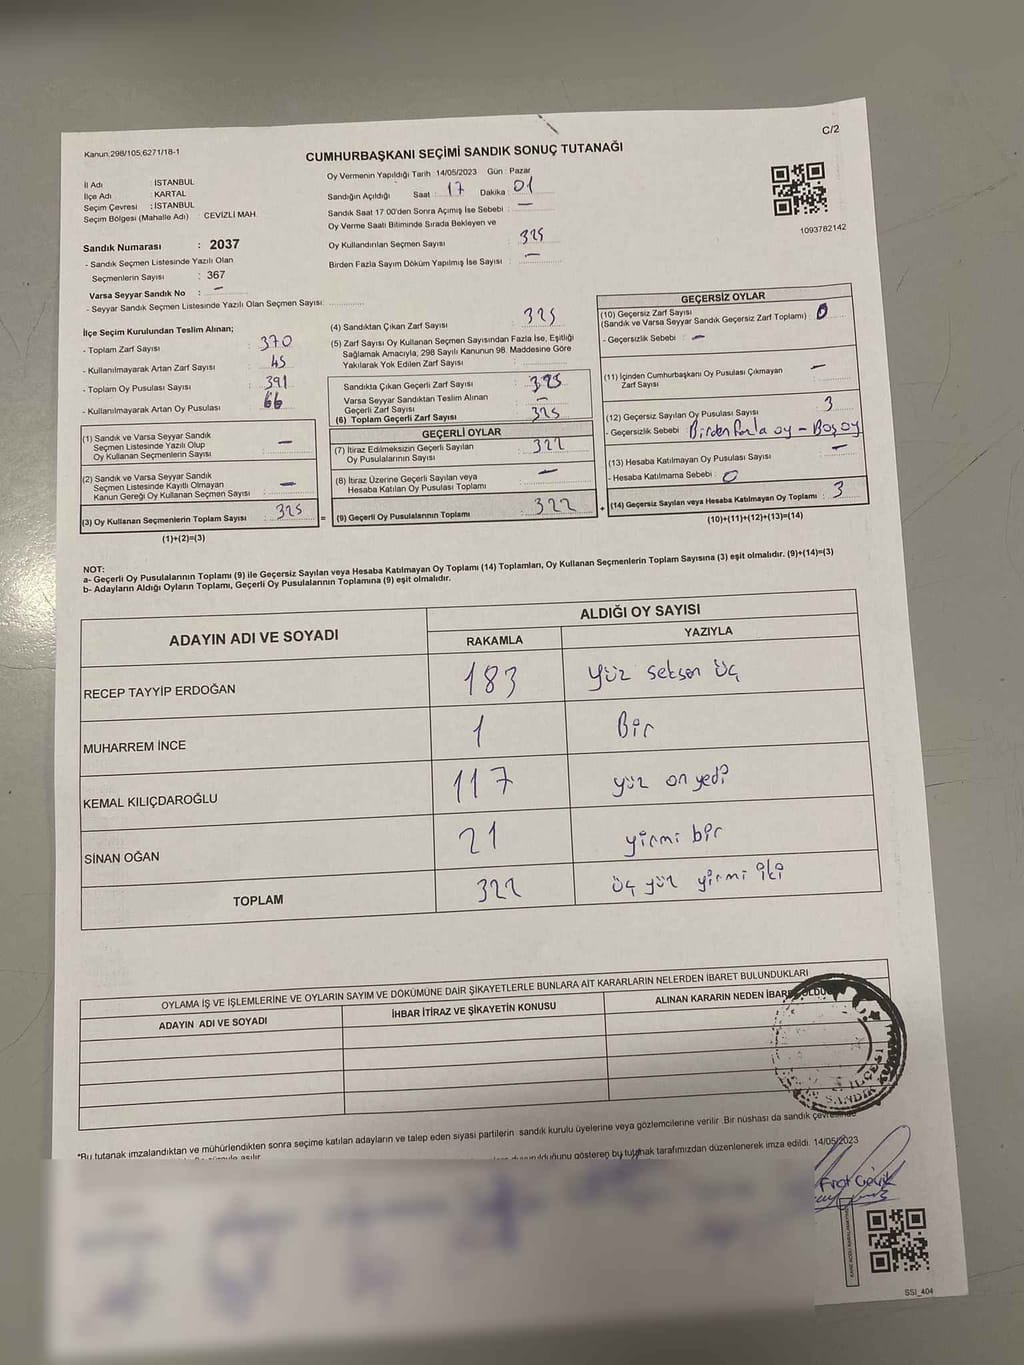 C/2
Kanun:298/105,6271/18-1
CUMHURBAŞKANI SEÇİMİ SANDIK SONUÇ TUTANAĞI
İl Adı : İSTANBUL
İlçe Adı : KARTAL
Seçim Çevresi : İSTANBUL
Seçim Bölgesi (Mahalle Adı) : CEVİZLİ MAH.
Sandık Numarası : 2037
- Sandık Seçmen Listesinde Yazılı Olan
Seçmenlerin Sayısı : 367
Varsa Seyyar Sandık No : —
- Seyyar Sandık Seçmen Listesinde Yazılı Olan Seçmen Sayısı:
Oy Vermenin Yapıldığı Tarih : 14/05/2023 Gün : Pazar
Sandığın Açıldığı Saat : 17 Dakika : 01
Sandık Saat 17:00'den Sonra Açılmış İse Sebebi : —
Oy Verme Saati Bitiminde Sırada Bekleyen ve
Oy Kullandırılan Seçmen Sayısı : 325
Birden Fazla Sayım Döküm Yapılmış İse Sayısı : —
1093782142
İlçe Seçim Kurulundan Teslim Alınan;
- Toplam Zarf Sayısı : 370
- Kullanılmayarak Artan Zarf Sayısı : 45
- Toplam Oy Pusulası Sayısı : 391
- Kullanılmayarak Artan Oy Pusulası : 66
(1) Sandık ve Varsa Seyyar Sandık
Seçmen Listesinde Yazılı Olup
Oy Kullanan Seçmenlerin Sayısı : —
(2) Sandık ve Varsa Seyyar Sandık
Seçmen Listesinde Kayıtlı Olmayan
Kanun Gereği Oy Kullanan Seçmen Sayısı : —
(3) Oy Kullanan Seçmenlerin Toplam Sayısı : 325
(1)+(2)=(3)
=
(4) Sandıktan Çıkan Zarf Sayısı : 325
(5) Zarf Sayısı Oy Kullanan Seçmen Sayısından Fazla İse, Eşitliği
Sağlamak Amacıyla, 298 Sayılı Kanunun 98. Maddesine Göre
Yakılarak Yok Edilen Zarf Sayısı :
Sandıkta Çıkan Geçerli Zarf Sayısı : 325
Varsa Seyyar Sandıktan Teslim Alınan
Geçerli Zarf Sayısı : —
(6) Toplam Geçerli Zarf Sayısı : 325
GEÇERLİ OYLAR
(7) İtiraz Edilmeksizin Geçerli Sayılan
Oy Pusulalarının Sayısı : 322
(8) İtiraz Üzerine Geçerli Sayılan veya
Hesaba Katılan Oy Pusulası Toplamı : —
(9) Geçerli Oy Pusulalarının Toplamı : 322
+
GEÇERSİZ OYLAR
(10) Geçersiz Zarf Sayısı
(Sandık ve Varsa Seyyar Sandık Geçersiz Zarf Toplamı) : 0
- Geçersizlik Sebebi : —
(11) İçinden Cumhurbaşkanı Oy Pusulası Çıkmayan
Zarf Sayısı : —
(12) Geçersiz Sayılan Oy Pusulası Sayısı : 3
- Geçersizlik Sebebi : Birden fazla oy - Boş oy
(13) Hesaba Katılmayan Oy Pusulası Sayısı : —
- Hesaba Katılmama Sebebi : 0
(14) Geçersiz Sayılan veya Hesaba Katılmayan Oy Toplamı : 3
(10)+(11)+(12)+(13)=(14)
NOT:
a- Geçerli Oy Pusulalarının Toplamı (9) ile Geçersiz Sayılan veya Hesaba Katılmayan Oy Toplamı (14) Toplamları, Oy Kullanan Seçmenlerin Toplam Sayısına (3) eşit olmalıdır. (9)+(14)=(3)
b- Adayların Aldığı Oyların Toplamı, Geçerli Oy Pusulalarının Toplamına (9) eşit olmalıdır.
ADAYIN ADI VE SOYADI ALDIĞI OY SAYISI
RAKAMLA YAZIYLA
RECEP TAYYİP ERDOĞAN 183 yüz seksen üç
MUHARREM İNCE 1 Bir
KEMAL KILIÇDAROĞLU 117 yüz on yedi
SİNAN OĞAN 21 yirmi bir
TOPLAM 322 üç yüz yirmi iki
OYLAMA İŞ VE İŞLEMLERİNE VE OYLARIN SAYIM VE DÖKÜMÜNE DAİR ŞİKAYETLERLE BUNLARA AİT KARARLARIN NELERDEN İBARET BULUNDUKLARI
ADAYIN ADI VE SOYADI İHBAR İTİRAZ VE ŞİKAYETİN KONUSU ALINAN KARARIN NEDEN İBARET OLDUĞU
İLÇESİ
SANDIK
*Bu tutanak imzalandıktan ve mühürlendikten sonra seçime katılan adayların ve talep eden siyasi partilerin sandık kurulu üyelerine veya gözlemcilerine verilir. Bir nüshası da sandık çevresinde
gösteren bu tutanak tarafımızdan düzenlenerek imza edildi. 14/05/2023
SSI_404